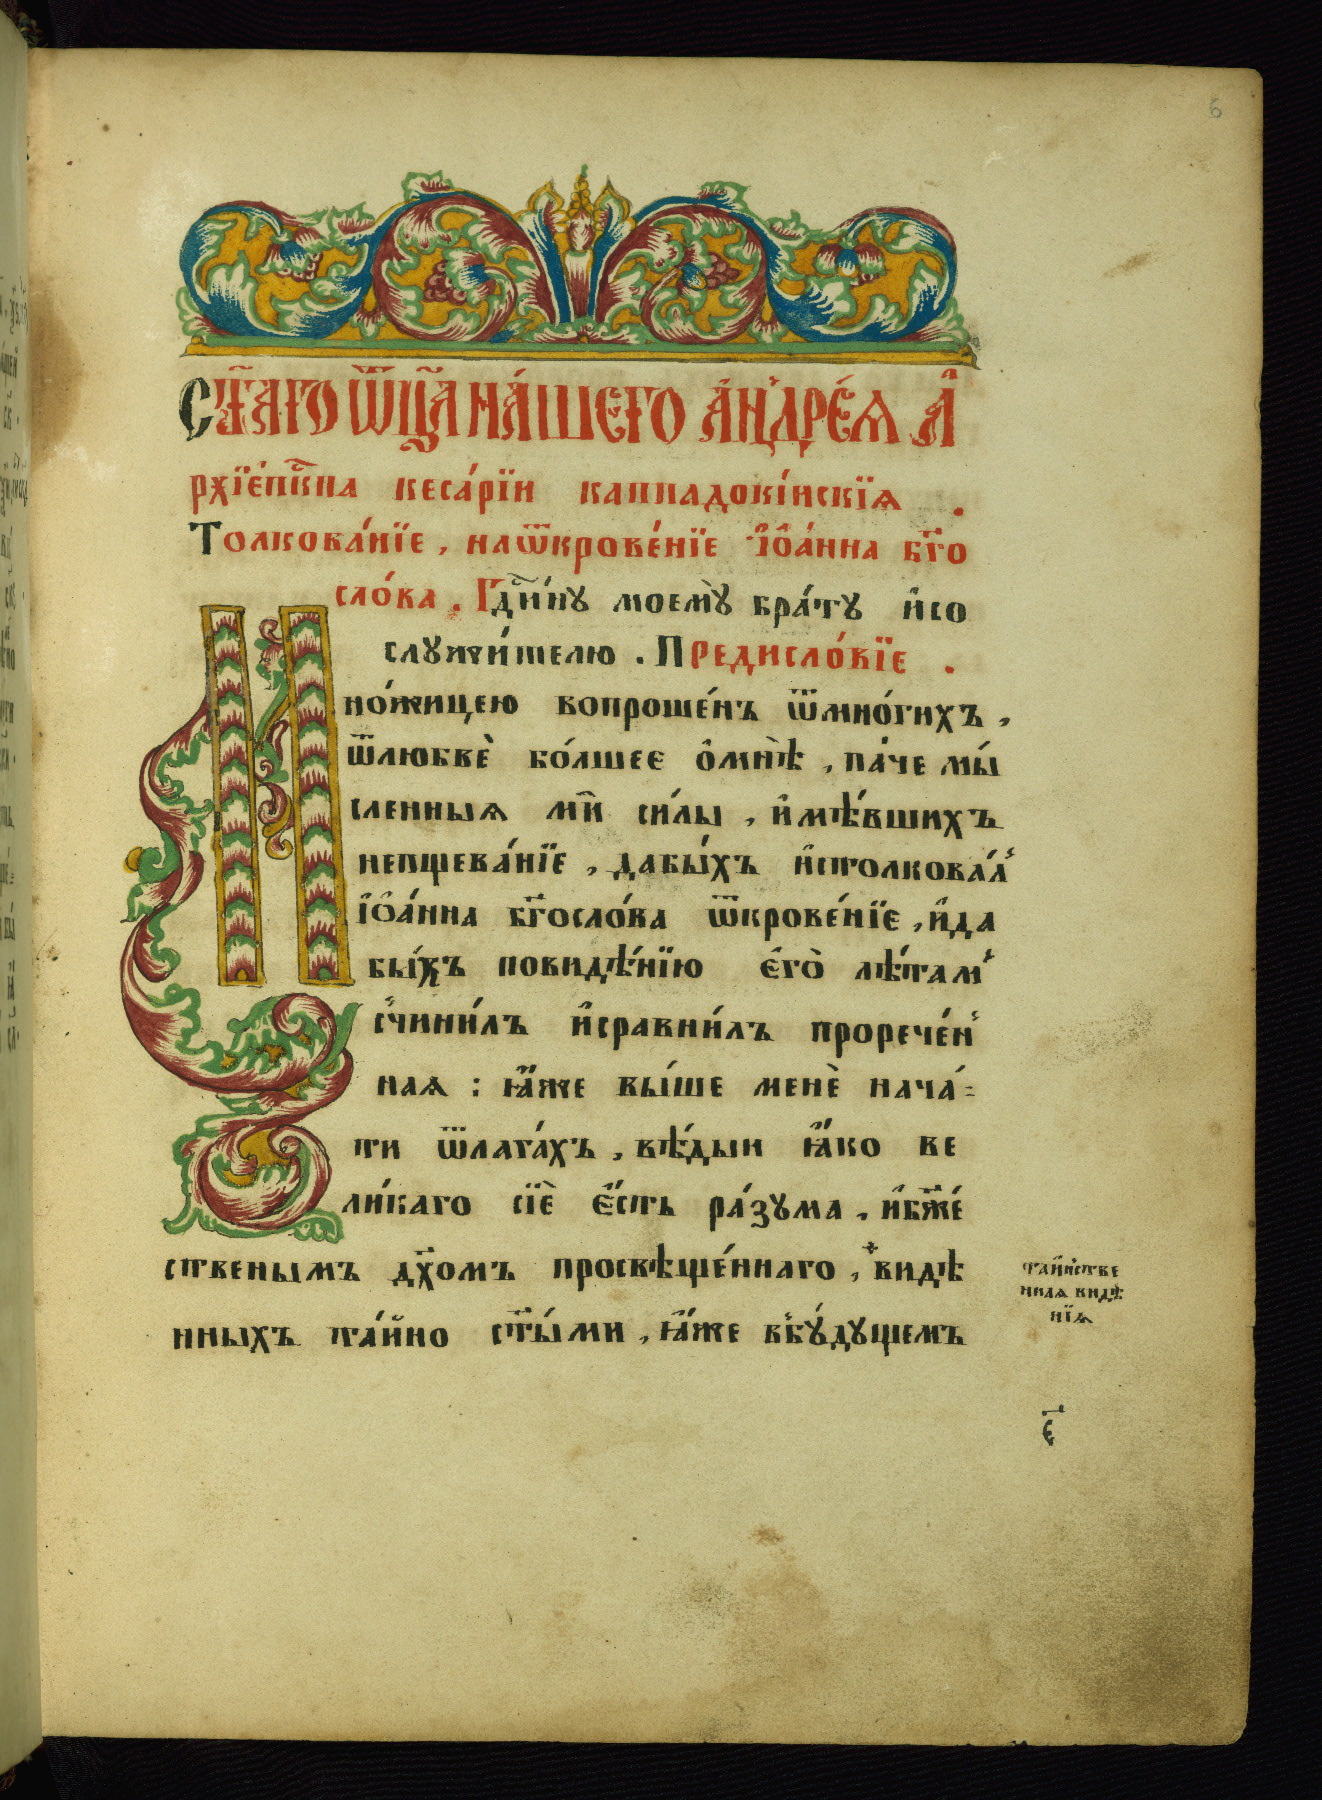 6
Ст҃аго ѿц҃а на́шего а҆ндре́ѧ а҆
рхїе́пкⷭ҇па кеса́рїи каппадокі́искїѧ .
Толкова́нїе , наѿкрове́нїе і҆ѡ҆а́нна бг҃о
сло́ва . Гдⷭ҇и́нꙋ моемꙋ̀ бра́тꙋ и҆со
слꙋжи́телю . Предисло́вїе .
но́жицею вопроше́нъ ѿмно́гихъ ,
ѿлюбвѐ бо́лшее ѡ҆мнѣ̀ , па́че мы́
сленныѧ мѝ си́лы , и҆мѣ́вшихъ
непщева́нїе , дабы́хъ и҆столкова́л̾
і҆ѡ҆а́нна бг҃осло́ва ѿкрове́нїе , и҆да
бы́хъ повидѣ́нїю є҆гѡ̀ лѣ́там̾
с̾чини́лъ и҆сравни́лъ прорече́н̾
наѧ : ꙗ҆́же вы́ше менѐ нача́-
ти ѿлага́хъ , вѣ́дыи ꙗ҆́ко ве
ли́каго сїѐ є҆́сть ра́зꙋма , и҆бж҃е́
ственымъ дх҃омъ просвѣще́ннаго , видѣ
нныхъ та́йно ст҃ы́ми , ꙗ҆́же в̾бꙋ́дꙋщемъ
таи҆нстве
ннаѧ видѣ
нїѧ
є҃